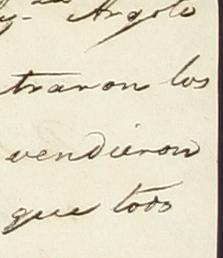 y- Argote
traron los
vendieron
que toos